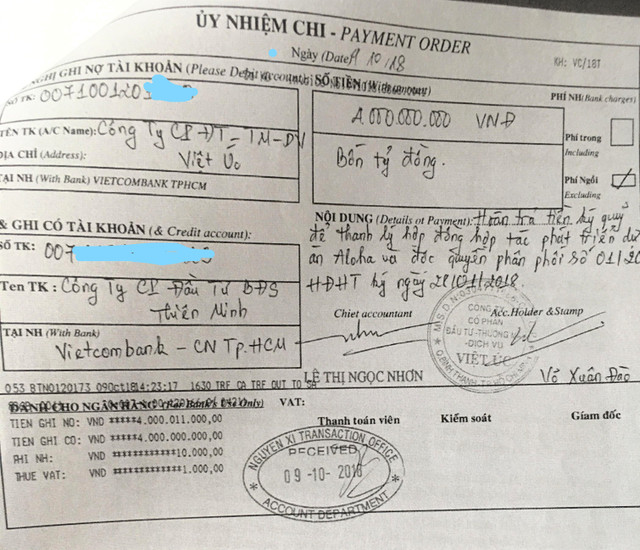 ỦY NHIỆM CHI - PAYMENT ORDER
Ngày (Date) 9/10/18
KH: VC/18T
NGHỊ GHI NỢ TÀI KHOẢN (Please Debit account):
SỐ TK: 007100120
TÊN TK (A/C Name): Công Ty CP ĐT-TM-DV
ĐỊA CHỈ (Address): Việt Úc
TẠI NH (With Bank) VIETCOMBANK TPHCM
SỐ TIỀN
4.000.000.000 VNĐ
Bốn tỷ đồng.
PHÍ NH (Bank charges)
Phí trong
Including
Phí Ngoài
Excluding
& GHI CÓ TÀI KHOẢN (& Credit account):
SỐ TK: 007
Tên TK : Công Ty CP Đầu Tư BĐS
Thiên Minh
TẠI NH (With Bank)
Vietcombank - CN Tp.HCM
NỘI DUNG (Details of Payment): Hoàn trả tiền ký quỹ
để thanh lý hợp đồng hợp tác phát triển dự
án Aloha và độc quyền phân phối số 01/20
HĐHT ký ngày 28/01/2018.
Chief accountant
Acc.Holder & Stamp
CÔNG TY
CỔ PHẦN
ĐẦU TƯ-THƯƠNG MẠI
-DỊCH VỤ
VIỆT ÚC
LÊ THỊ NGỌC NHƠN
Võ Xuân Đào
053 BTNO120173 09Oct18 14:23:17 1630 TRF CA TRF OUT TO SA
DÀNH CHO NGÂN HÀNG (For Bank's Use Only) VAT:
TIEN GHI NO: VND *****4.000.011.000,00
TIEN GHI CO: VND *****4.000.000.000,00
PHI NH: VND ************10.000,00
THUE VAT: VND *************1.000,00
Thanh toán viên
Kiểm soát
Giám đốc
NGUYEN XI TRANSACTION OFFICE
RECEIVED
09-10-2018
ACCOUNT DEPARTMENT